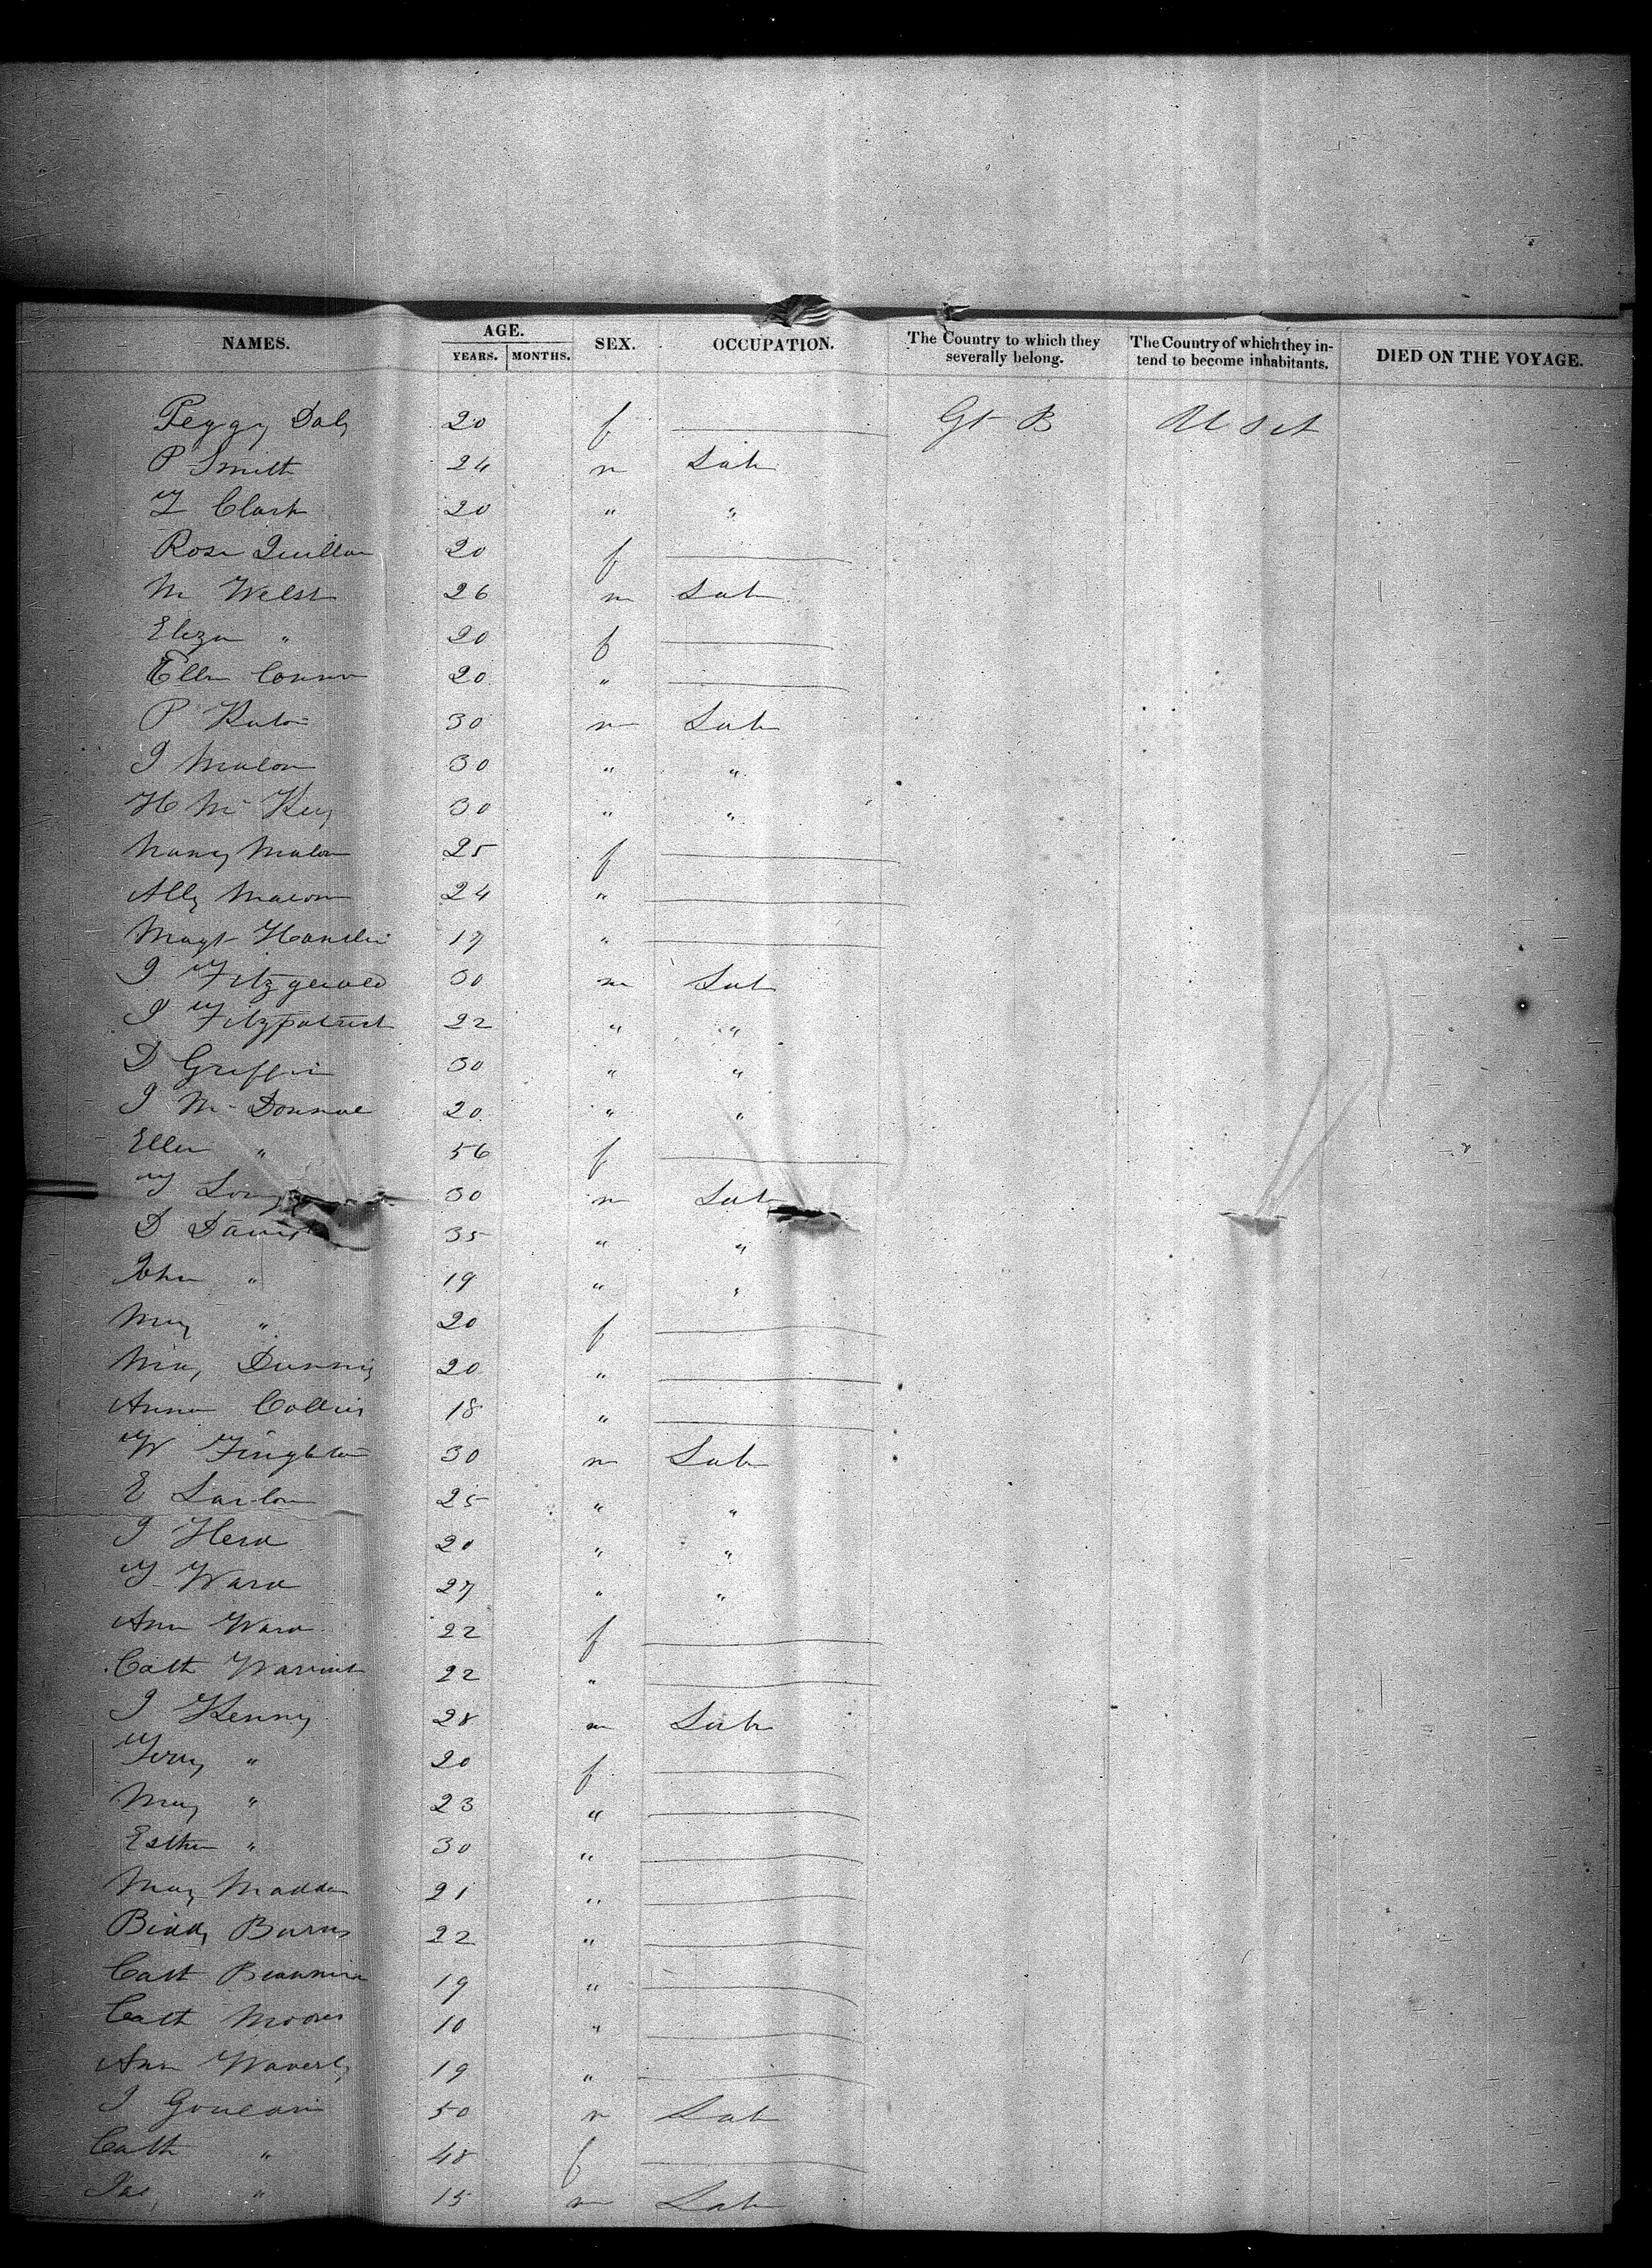 NAMES. AGE. SEX. OCCUPATION. The Country to which they severally belong. The Country of which they intend to become inhabitants. DIED ON THE VOYAGE.
YEARS. MONTHS.
Peggy Daly 20 f Gt B U S A
P Smith 24 m Lab
T Clark 20 " "
Rose Quillan 20 f
M Welsh 26 m Lab
Eliza " 20 f
Ellen Connor 20 "
P 30 m Lab
J Malon 30 " "
H Mc Key 30 " "
Nancy Malon 25 f
Ally 24 "
Magt Hanslin 17 "
J Fitzgerald 30 m Lab
J Fitzpatrick 22 " "
D Griffin 30 " "
J Mc Donnal 20 " "
Ellen " 56 f
T Long 30 m Lab
D Davis 35 " "
John " 19 " "
Mary " 20 f
Mary Dunning 20 "
Anna Collins 18 "
W Fingleton 30 m Lab
E 25 " "
J 20 " "
T Ward 27 " "
Ann Ward 22 f
Cath 22 "
J Kenny 28 m Lab
" 20 f
Mary " 23 "
Esther " 30 "
Mary Madden 21 "
Biddy Burns 22 "
Cath 19 "
Cath Moores 10 "
Ann Waverly 19 "
J 50 m Lab
Cath " 48 f
Jas " 15 m Lab